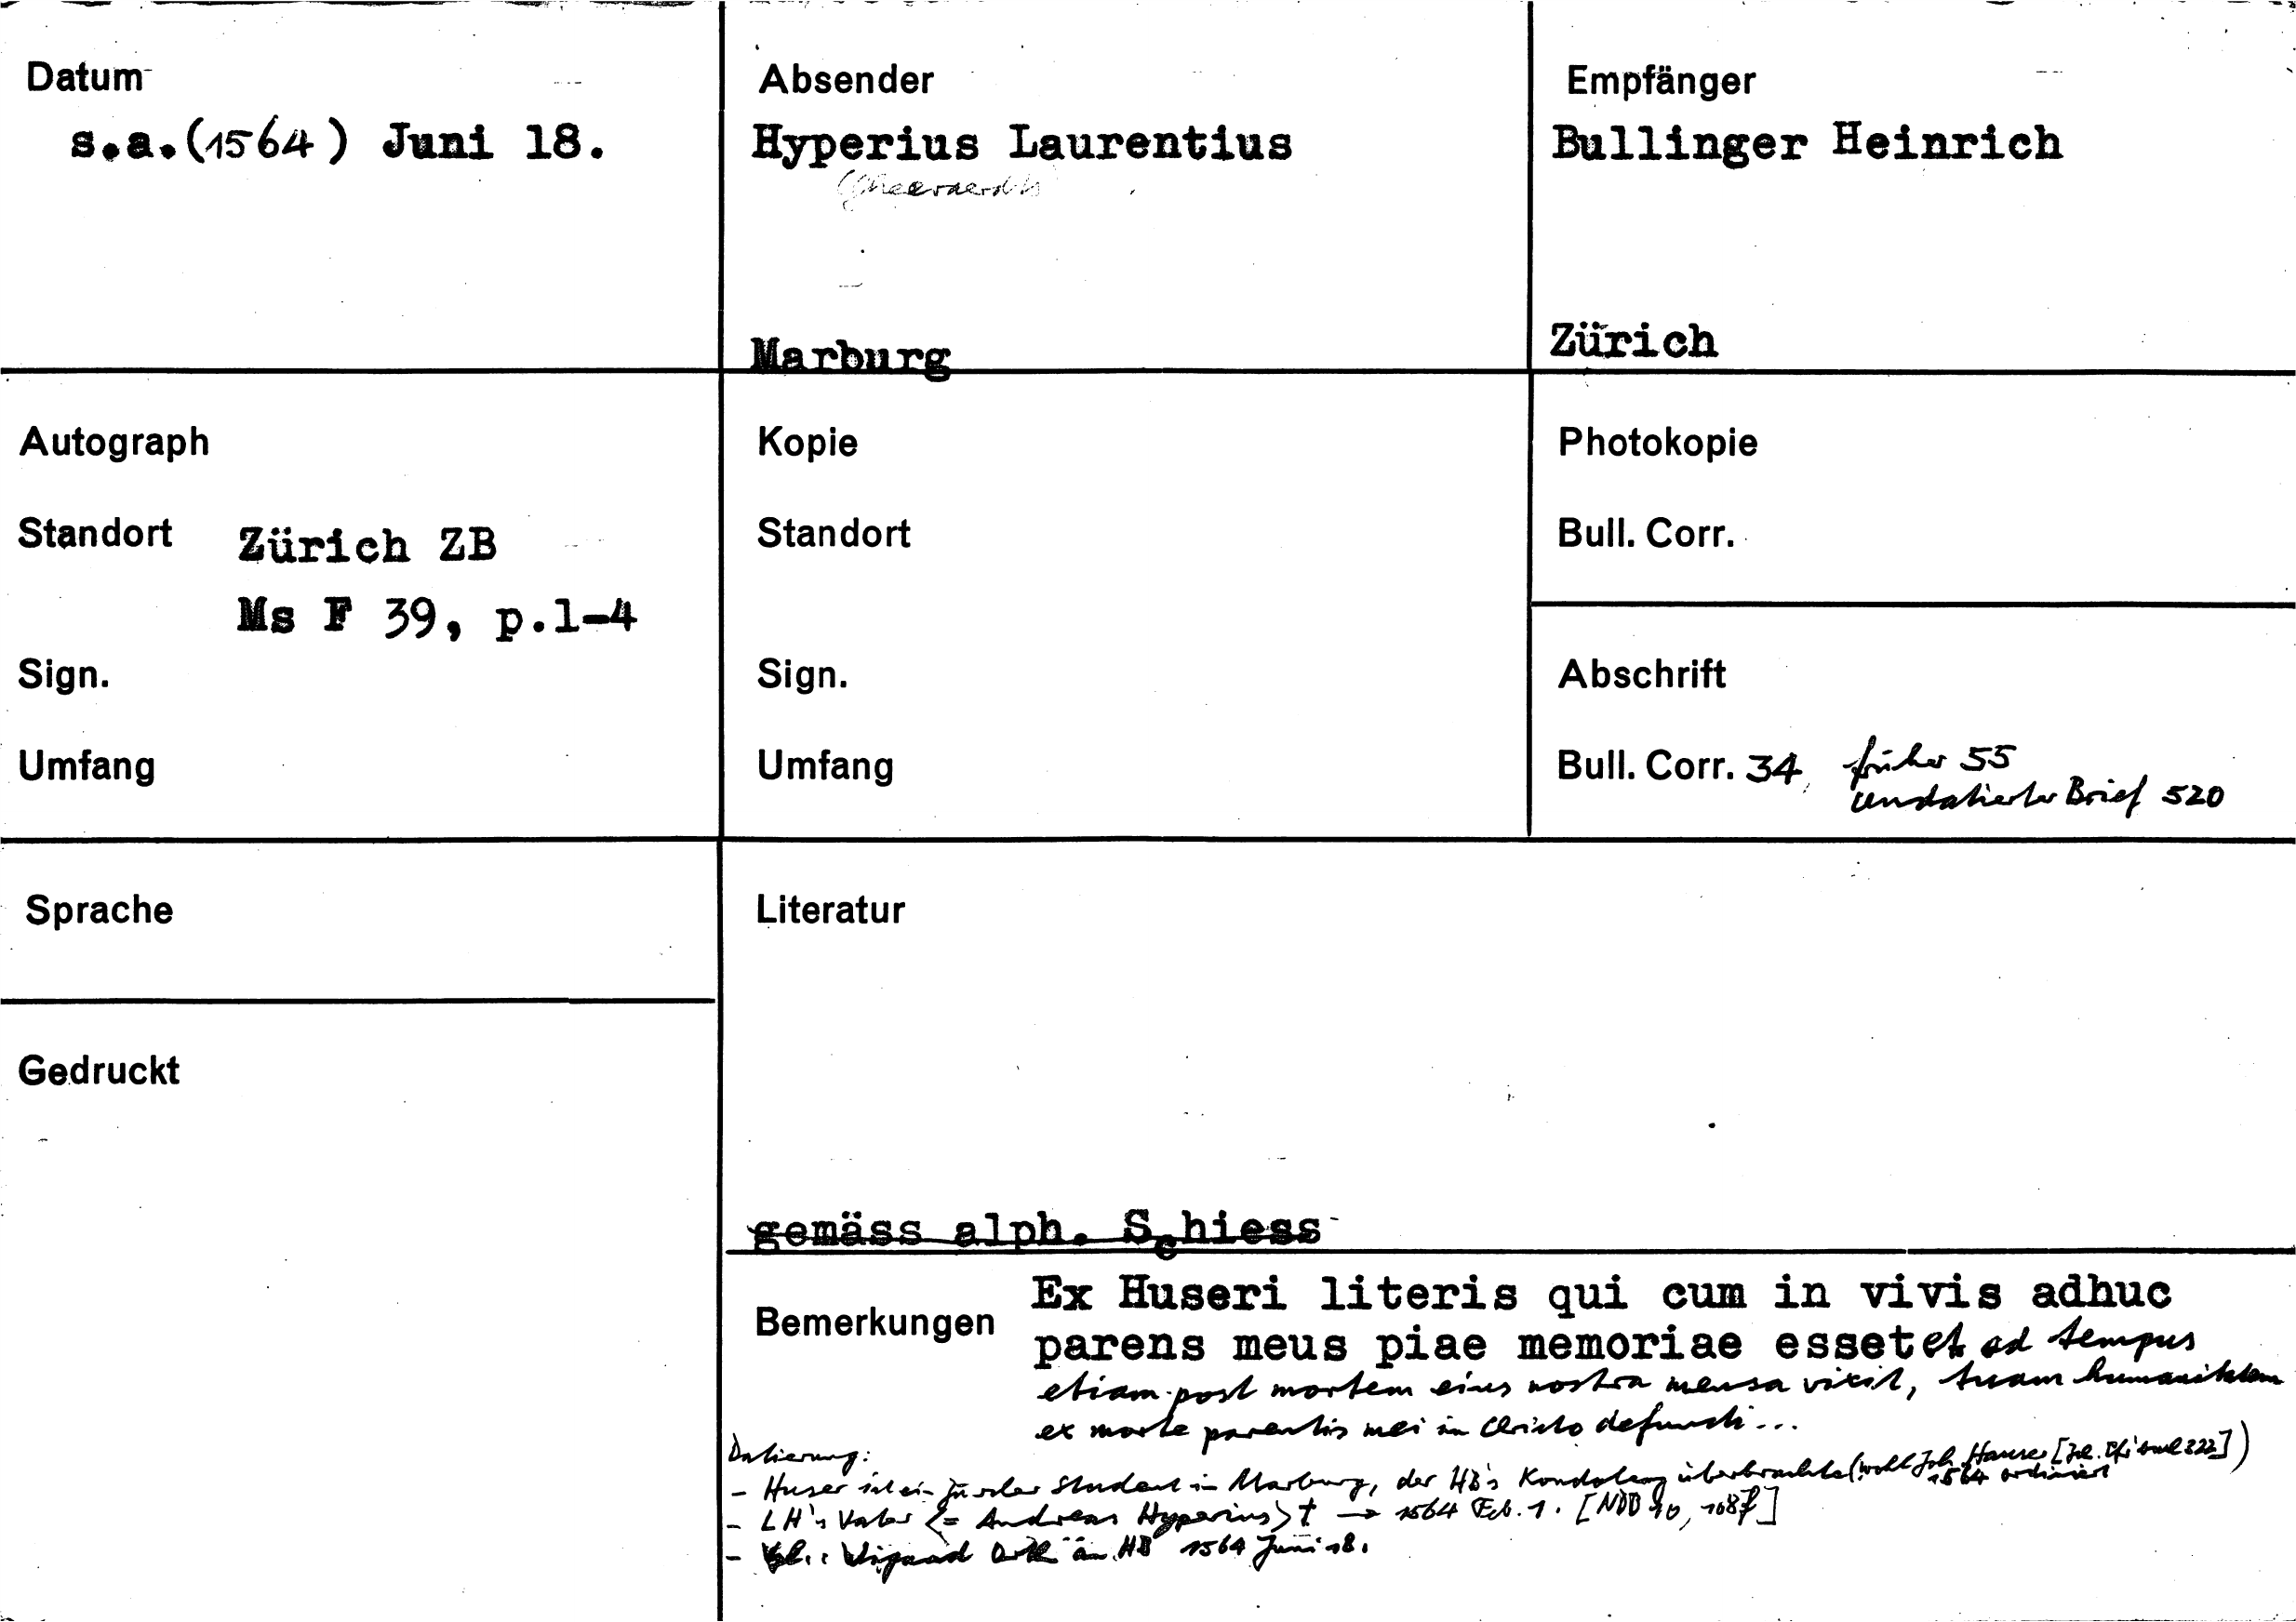 Datum
s.a.(1564) Juni 18.
Absender
Hyperius Laurentius
Marburg
Empfänger
Bullinger Heinrich
Zürich
Autograph
Standort Zürich ZB
Ms F 39, p.1-4
Sign.
Umfang
Kopie
Standort
Sign.
Umfang
Photokopie
Bull. Corr.
Abschrift
Bull. Corr. 34 früher 55
undatierter Brief 520
Sprache
Gedruckt
Literatur
gemäss alph. Schiess
Bemerkungen
Ex Huseri literis qui cum in vivis adhuc
parens meus piae memoriae esset et ad tempus
etiam post mortem eius nostra mensa vixit, tuam humanitatem
ex morte parentis mei in Christo defuncti...
Datierung:
- Huser ist ein Zürcher Student in Marburg, der HB's Kondolenz überbrachte (wohl Joh. Hauser
1564 ordiniert
- LH's Vater <= Andreas Hyperius> † → 1564 Feb. 1. [NDB 10, 108f]
- Vgl.: Wigand Orth an HB 1564 Juni 18.